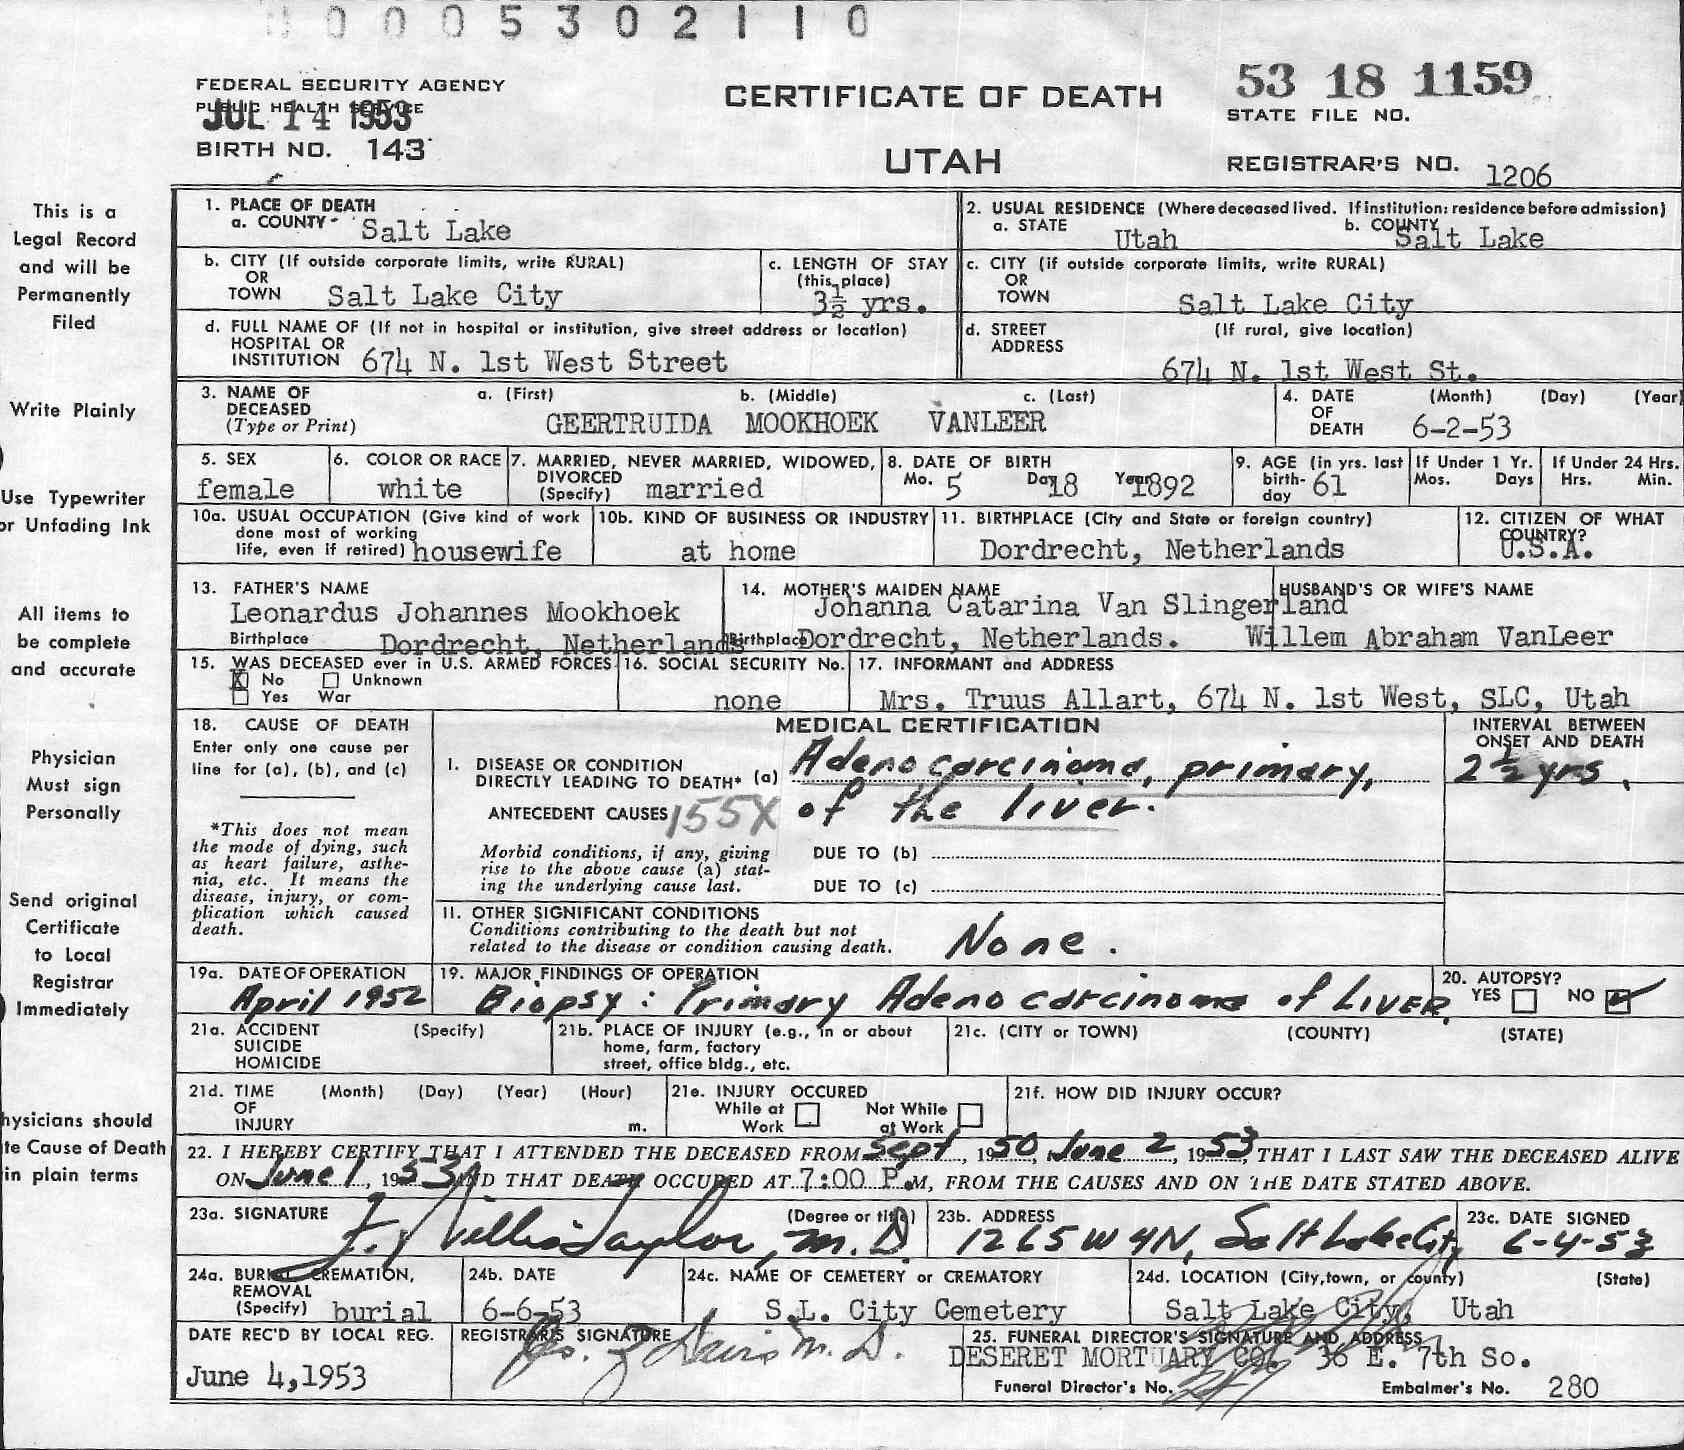 0005302110
FEDERAL SECURITY AGENCY
PUBLIC HEALTH SERVICE
JUL 14 1953
BIRTH NO. 143
CERTIFICATE OF DEATH
UTAH
53 18 1159
STATE FILE NO.
REGISTRAR'S NO. 1206
This is a
Legal Record
and will be
Permanently
Filed
Write Plainly
Use Typewriter
or Unfading Ink
All items to
be complete
and accurate
Physician
Must sign
Personally
Send original
Certificate
to Local
Registrar
Immediately
hysicians should
te Cause of Death
in plain terms
1. PLACE OF DEATH
a. COUNTY Salt Lake
2. USUAL RESIDENCE (Where deceased lived. If institution: residence before admission)
a. STATE Utah b. COUNTY Salt Lake
b. CITY (If outside corporate limits, write RURAL)
OR
TOWN Salt Lake City
c. LENGTH OF STAY
(this place)
3½ yrs.
c. CITY (if outside corporate limits, write RURAL)
OR
TOWN Salt Lake City
d. FULL NAME OF (If not in hospital or institution, give street address or location)
HOSPITAL OR
INSTITUTION 674 N. 1st West Street
d. STREET (If rural, give location)
ADDRESS
674 N. 1st West St.
3. NAME OF a. (First) b. (Middle) c. (Last)
DECEASED
(Type or Print) GEERTRUIDA MOOKHOEK VANLEER
4. DATE (Month) (Day) (Year)
OF
DEATH 6-2-53
5. SEX
female
6. COLOR OR RACE
white
7. MARRIED, NEVER MARRIED, WIDOWED,
DIVORCED
(Specify) married
8. DATE OF BIRTH
Mo. 5 Day 18 Year 1892
9. AGE (in yrs. last
birth-
day 61
If Under 1 Yr.
Mos. Days
If Under 24 Hrs.
Hrs. Min.
10a. USUAL OCCUPATION (Give kind of work
done most of working
life, even if retired) housewife
10b. KIND OF BUSINESS OR INDUSTRY
at home
11. BIRTHPLACE (City and State or foreign country)
Dordrecht, Netherlands
12. CITIZEN OF WHAT
COUNTRY?
U.S.A.
13. FATHER'S NAME
Leonardus Johannes Mookhoek
Birthplace Dordrecht, Netherlands
14. MOTHER'S MAIDEN NAME
Johanna Catarina Van Slingerland
Birthplace Dordrecht, Netherlands.
HUSBAND'S OR WIFE'S NAME
Willem Abraham VanLeer
15. WAS DECEASED ever in U.S. ARMED FORCES
X No Unknown
Yes War
16. SOCIAL SECURITY No.
none
17. INFORMANT and ADDRESS
Mrs. Truus Allart, 674 N. 1st West, SLC, Utah
18. CAUSE OF DEATH
Enter only one cause per
line for (a), (b), and (c)
*This does not mean
the mode of dying, such
as heart failure, asthe-
nia, etc. It means the
disease, injury, or com-
plication which caused
death.
MEDICAL CERTIFICATION
INTERVAL BETWEEN
ONSET AND DEATH
I. DISEASE OR CONDITION
DIRECTLY LEADING TO DEATH* (a) Adenocarcinoma, primary, 2½ yrs.
ANTECEDENT CAUSES 155X of the liver.
Morbid conditions, if any, giving
rise to the above cause (a) stat-
ing the underlying cause last.
DUE TO (b)
DUE TO (c)
II. OTHER SIGNIFICANT CONDITIONS
Conditions contributing to the death but not
related to the disease or condition causing death. None.
19a. DATE OF OPERATION
April 1952
19. MAJOR FINDINGS OF OPERATION
Biopsy: Primary Adenocarcinoma of LIVER.
20. AUTOPSY?
YES NO
21a. ACCIDENT (Specify)
SUICIDE
HOMICIDE
21b. PLACE OF INJURY (e.g., in or about
home, farm, factory
street, office bldg., etc.
21c. (CITY or TOWN) (COUNTY) (STATE)
21d. TIME (Month) (Day) (Year) (Hour)
OF
INJURY m.
21e. INJURY OCCURED
While at Not While
Work at Work
21f. HOW DID INJURY OCCUR?
22. I HEREBY CERTIFY THAT I ATTENDED THE DECEASED FROM Sept, 1950, June 2, 1953, THAT I LAST SAW THE DECEASED ALIVE
ON June 1, 1953 AND THAT DEATH OCCURED AT 7:00 P.M, FROM THE CAUSES AND ON THE DATE STATED ABOVE.
23a. SIGNATURE (Degree or title)
F. Willis Taylor, M.D.
23b. ADDRESS
1265 W 4N, Salt Lake City,
23c. DATE SIGNED
6-4-53
24a. BURIAL, CREMATION,
REMOVAL
(Specify) burial
24b. DATE
6-6-53
24c. NAME OF CEMETERY or CREMATORY
S.L. City Cemetery
24d. LOCATION (City, town, or county) (State)
Salt Lake City, Utah
DATE REC'D BY LOCAL REG.
June 4, 1953
REGISTRAR'S SIGNATURE
Davis M.D.
25. FUNERAL DIRECTOR'S SIGNATURE AND ADDRESS
DESERET MORTUARY CO. 36 E. 7th So.
Funeral Director's No.
Embalmer's No. 280